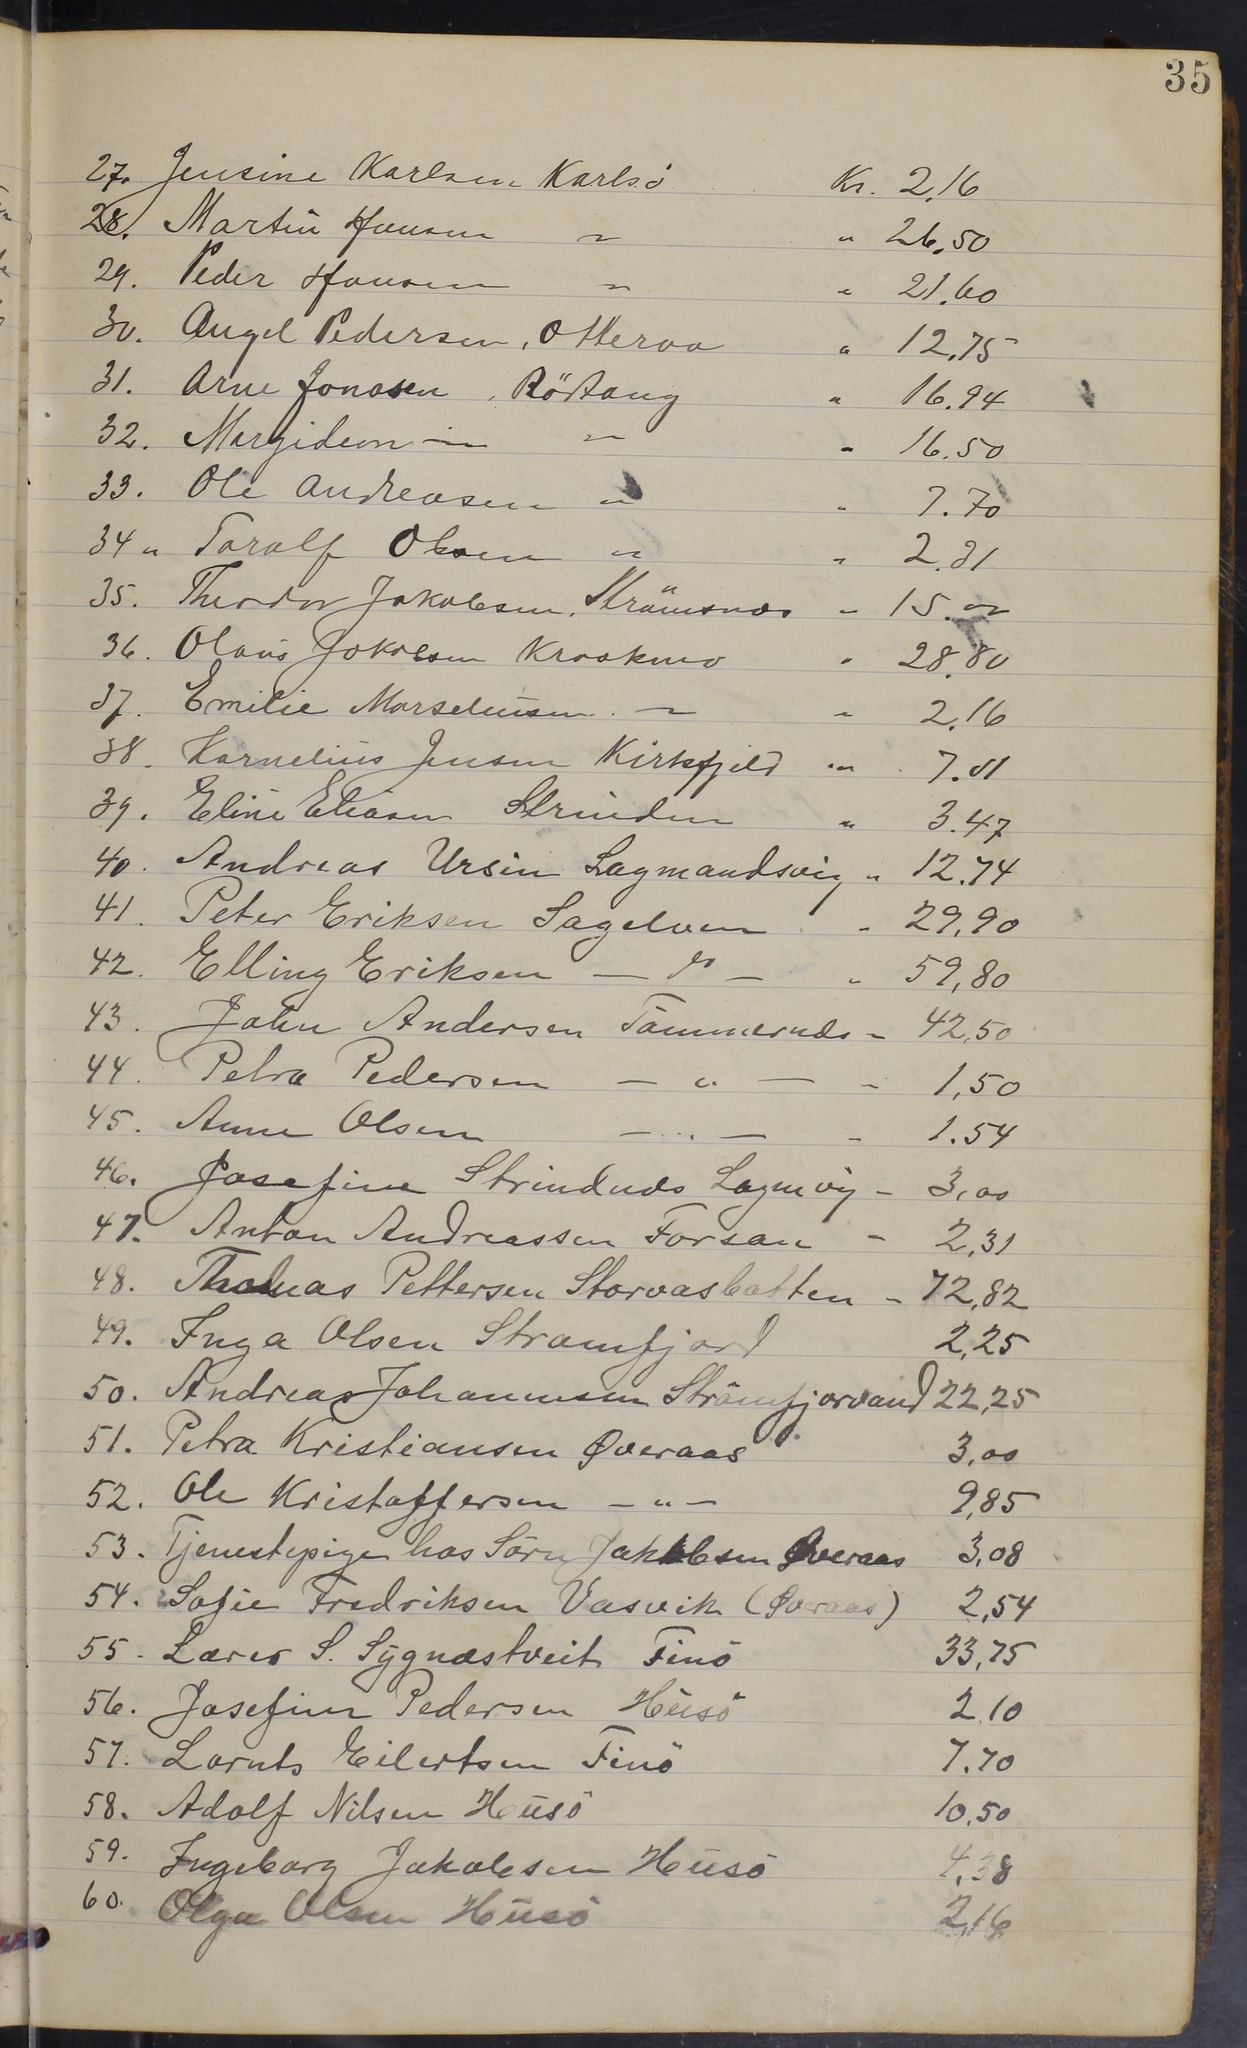 35
27. Jensine Karlsen Karlsö Kr. 2,16
28. Martin Hansen " " 26,50
29. Peder Hansen " " 21.60
30. Angel Pedersen, Otteraa " 12,75
31. Arne Jonasen, Röstang " 16.94
32. Margideon " " - 16.50
33. Ole Andreasen " " 7.70
34 " Toralf Olsen " " 2.31
35. Theodor Jakobsen, Strömsnes " 15."
36. Olaus Jakobsen Kraakmo " 28,80
37. Emilie Marseliusen " " 2,16
38. Kornelius Jensen Kirkfjeld " 7.01
39. Eline Eliasen Strinden " 3.47
40. Andreas Ursin Lagmandsvig " 12.74
41. Peter Eriksen Sagelven - 29,90
42. Elling Eriksen — do — " 59,80
43. John Andersen Tömmernes - 42,50
44. Petra Pedersen — " — - 1,50
45. Anne Olsen — " — - 1.54
46. Josefine Strindnes Lagmvig - 3,00
47. Anton Andreassen Forsan - 2,31
48. Thomas Pettersen Storvasbotten - 72,82
49. Inga Olsen Strömfjord 2,25
50. Andreas Johannesen Strömfjorvand 22,25
51. Petra Kristiansen Øveraas 3,00
52. Ole Kristoffersen - " - 9,85
53. Tjenestepige hos Sörn Jakobsen Øveraas 3,08
54. Sofie Fredriksen Vasvik (Øveraas) 2,54
55. Lærer S. Sygnæstveit Finö 33,75
56. Josefine Pedersen Husö 2.10
57. Lornts Eilertsen Finö 7.70
58. Adolf Nilsen Husö 10,50
59. Ingeborg Jakobsen Husö 4,38
60. Olga Olsen Husö 2,16